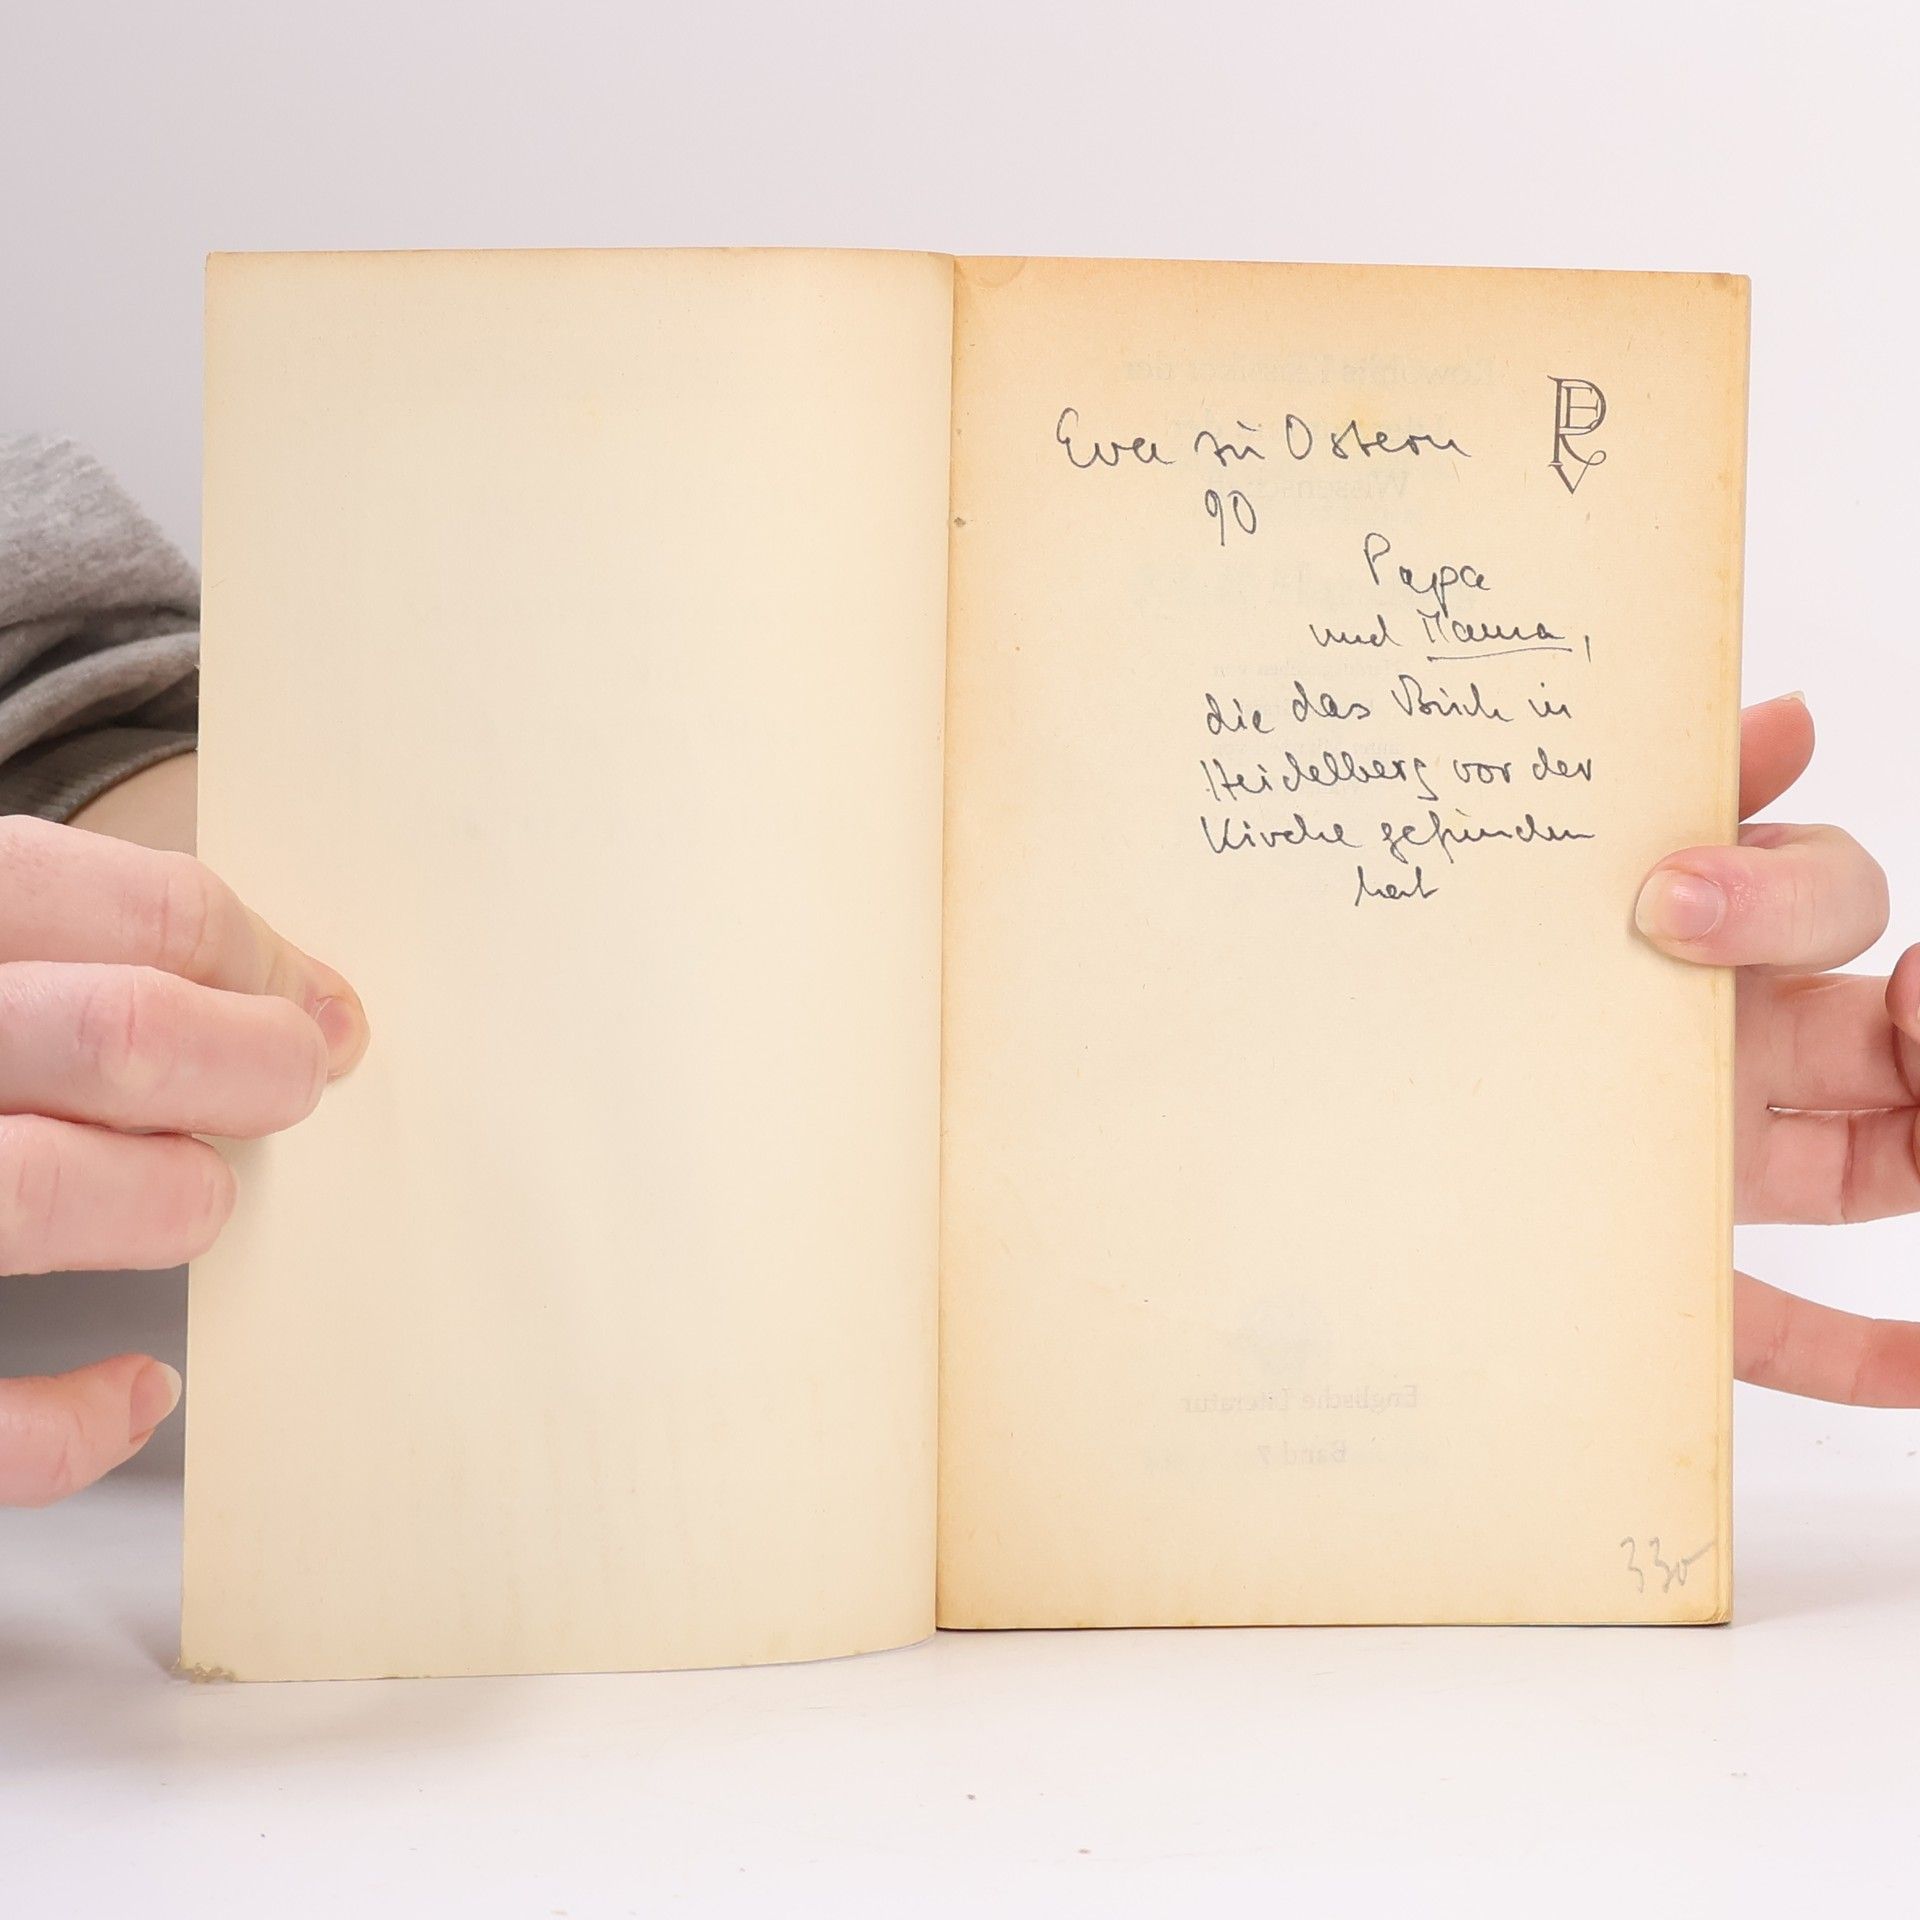 Eva zu Ostern
90
Papa
und Mama,
die das Buch in
Heidelberg vor der
Kirche gefunden
hat
Englische Literatur
Band 7
330